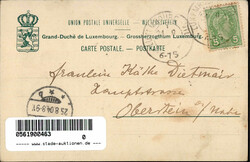 UNION POSTALE UNIVERSELLE . WELTPOSTVEREIN
Grand-Duché de Luxembourg. — Grossherzogthum Luxemburg.
CARTE POSTALE. — POSTKARTE
5
6-7S
Fraulein Käthe Dietmair
Hauptstrasse
Oberstein a/Nahe
25.8.04.8-9V.
0561900463
0
www.stade-auktionen.de